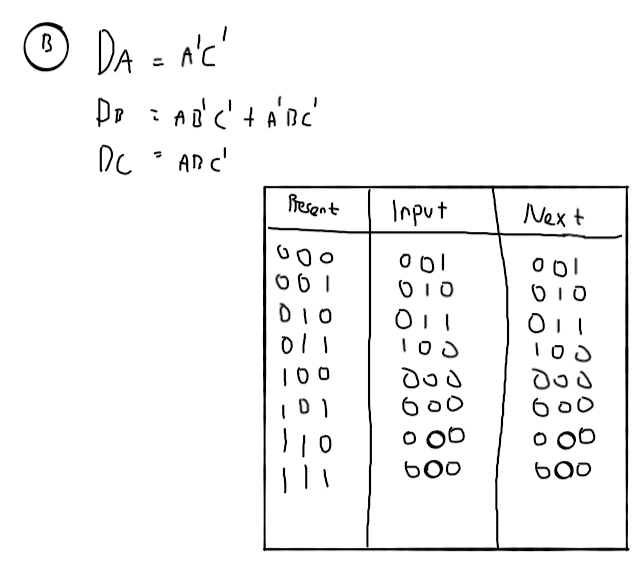 B D_A = A'C'
D_B = AB'C' + A'BC'
DC = ABC'
Present Input Next
000 001 001
001 010 010
010 011 011
011 100 100
100 000 000
101 000 000
110 000 000
111 000 000